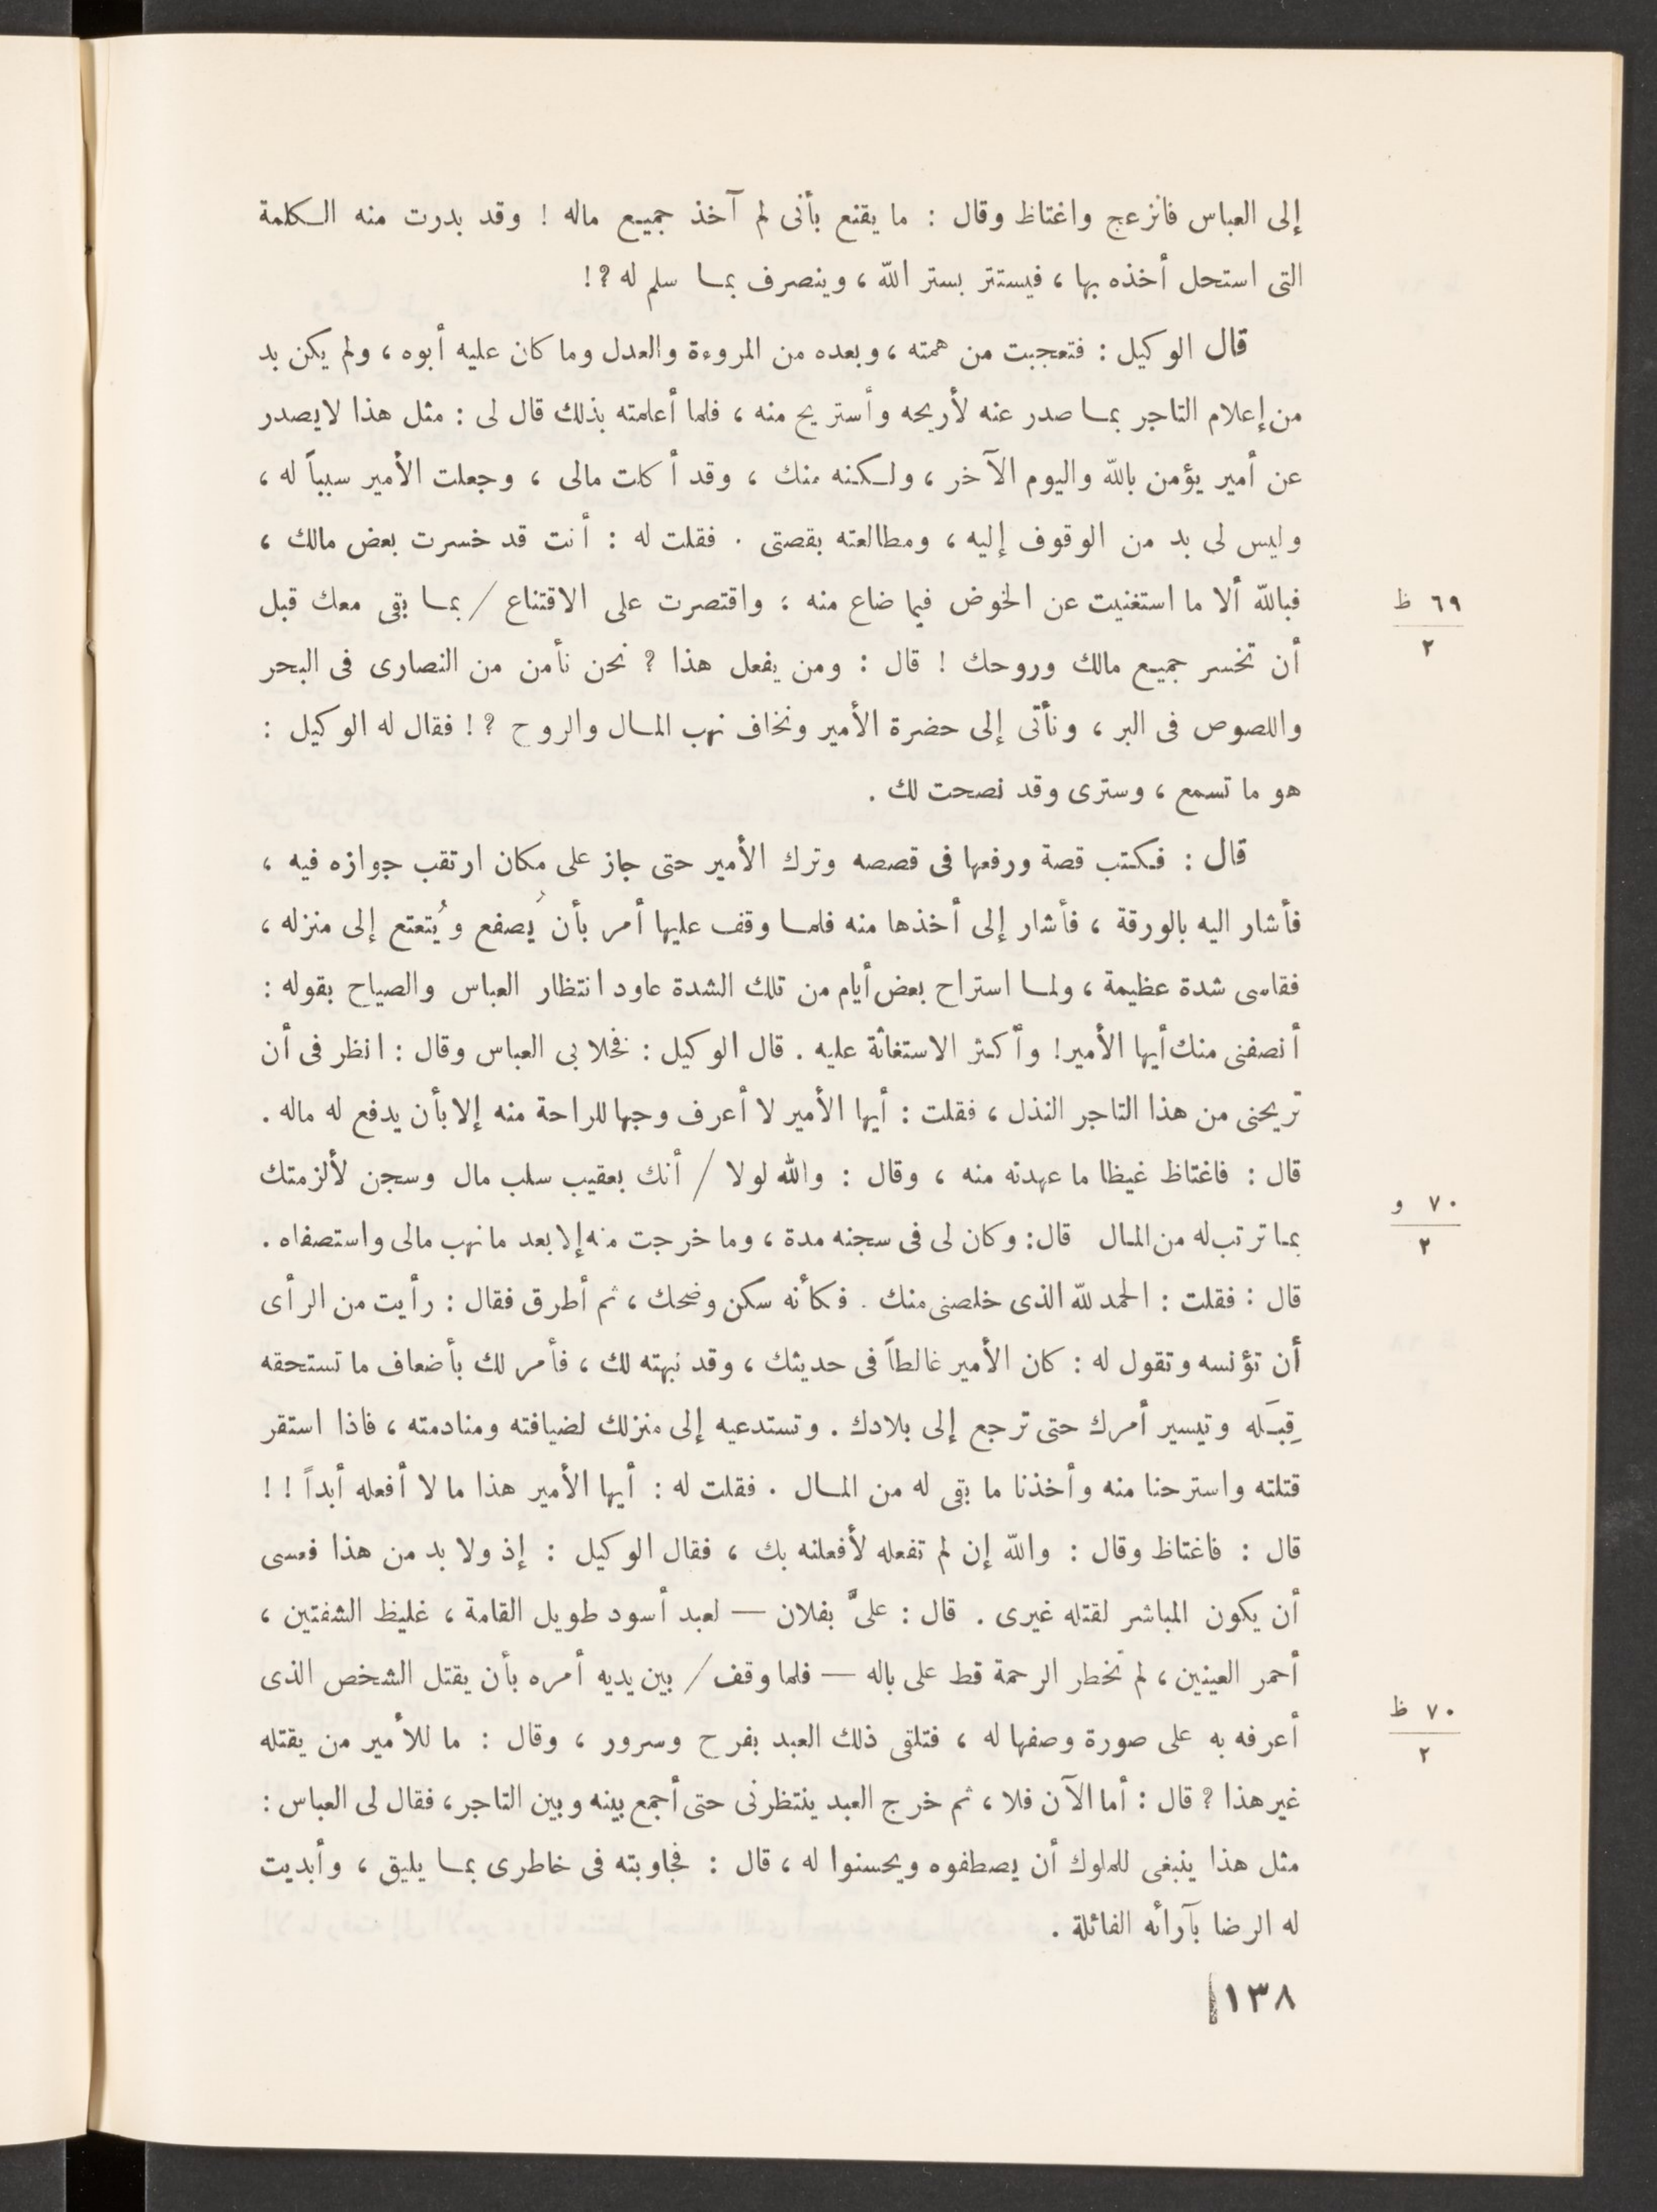 إلى العباس فانزعج واغتاظ وقال : ما يقنع بأنى لم آخذ جميع ماله ! وقد بدرت منه الكلمة
التى استحل أخذه بها ، فيستتر بستر الله ، وينصرف بما سلم له ؟ !
قال الوكيل : فتعجبت من همته ، وبعده من المروءة والعدل وما كان عليه أبوه ، ولم يكن بد
من إعلام التاجر بما صدر عنه لأريحه وأستريح منه ، فلما أعلمته بذلك قال لى : مثل هذا لايصدر
عن أمير يؤمن بالله واليوم الآخر ، ولكنه منك ، وقد أكلت مالى ، وجعلت الأمير سبباً له ،
وليس لى بد من الوقوف إليه ، ومطالعته بقصتى . فقلت له : أنت قد خسرت بعض مالك ،
فبالله ألا ما استغنيت عن الخوض فيما ضاع منه ؛ واقتصرت على الاقتناع / بما بقى معك قبل
٦٩ ظ
٢
أن تخسر جميع مالك وروحك ! قال : ومن يفعل هذا ؟ نحن نأمن من النصارى فى البحر
واللصوص فى البر ، ونأتى إلى حضرة الأمير ونخاف نهب المال والروح ؟ ! فقال له الوكيل :
هو ما تسمع ، وسترى وقد نصحت لك .
قال : فكتب قصة ورفعها فى قصصه وترك الأمير حتى جاز على مكان ارتقب جوازه فيه ،
فأشار اليه بالورقة ، فأشار إلى أخذها منه فلما وقف عليها أمر بأن يُصفع ويُتعتع إلى منزله ،
فقاسى شدة عظيمة ، ولما استراح بعض أيام من تلك الشدة عاود انتظار العباس والصياح بقوله :
أنصفنى منك أيها الأمير ! وأكثر الاستغاثة عليه . قال الوكيل : فخلا بى العباس وقال : انظر فى أن
تريحنى من هذا التاجر النذل ، فقلت : أيها الأمير لا أعرف وجها للراحة منه إلا بأن يدفع له ماله .
قال : فاغتاظ غيظا ما عهدته منه ، وقال : والله لولا / أنك بعقيب سلب مال وسجن لألزمتك
٧٠ و
٢
بما ترتب له من المال قال : وكان لى فى سجنه مدة ، وما خرجت منه إلا بعد ما نهب مالى واستصفاه .
قال : فقلت : الحمد لله الذى خلصنى منك . فكأنه سكن وضحك ، ثم أطرق فقال : رأيت من الرأى
أن تؤنسه وتقول له : كان الأمير غالطاً فى حديثك ، وقد نبهته لك ، فأمر لك بأضعاف ما تستحقه
قِبَله وتيسير أمرك حتى ترجع إلى بلادك . وتستدعيه إلى منزلك لضيافته ومنادمته ، فاذا استقر
قتلته واسترحنا منه وأخذنا ما بقى له من المال . فقلت له : أيها الأمير هذا ما لا أفعله أبداً ! !
قال : فاغتاظ وقال : والله إن لم تفعله لأفعلنه بك ، فقال الوكيل : إذ ولا بد من هذا فعسى
أن يكون المباشر لقتله غيرى . قال : علىَّ بفلان — لعبد أسود طويل القامة ، غليظ الشفتين ،
أحمر العينين ، لم تخطر الرحمة قط على باله — فلما وقف / بين يديه أمره بأن يقتل الشخص الذى
٧٠ ظ
٢
أعرفه به على صورة وصفها له ، فتلقى ذلك العبد بفرح وسرور ، وقال : ما للأمير من يقتله
غير هذا ؟ قال : أما الآن فلا ، ثم خرج العبد ينتظرنى حتى أجمع بينه وبين التاجر ، فقال لى العباس :
مثل هذا ينبغى للملوك أن يصطفوه ويحسنوا له ، قال : فجاوبته فى خاطرى بما يليق ، وأبديت
له الرضا بآرائه الفائلة .
١٣٨